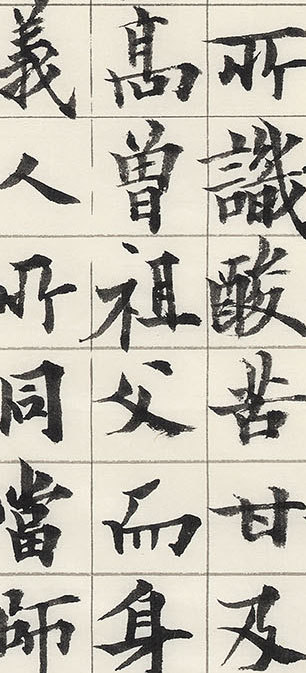 所識酸苦甘及
高曾祖父而身
義人所同當師